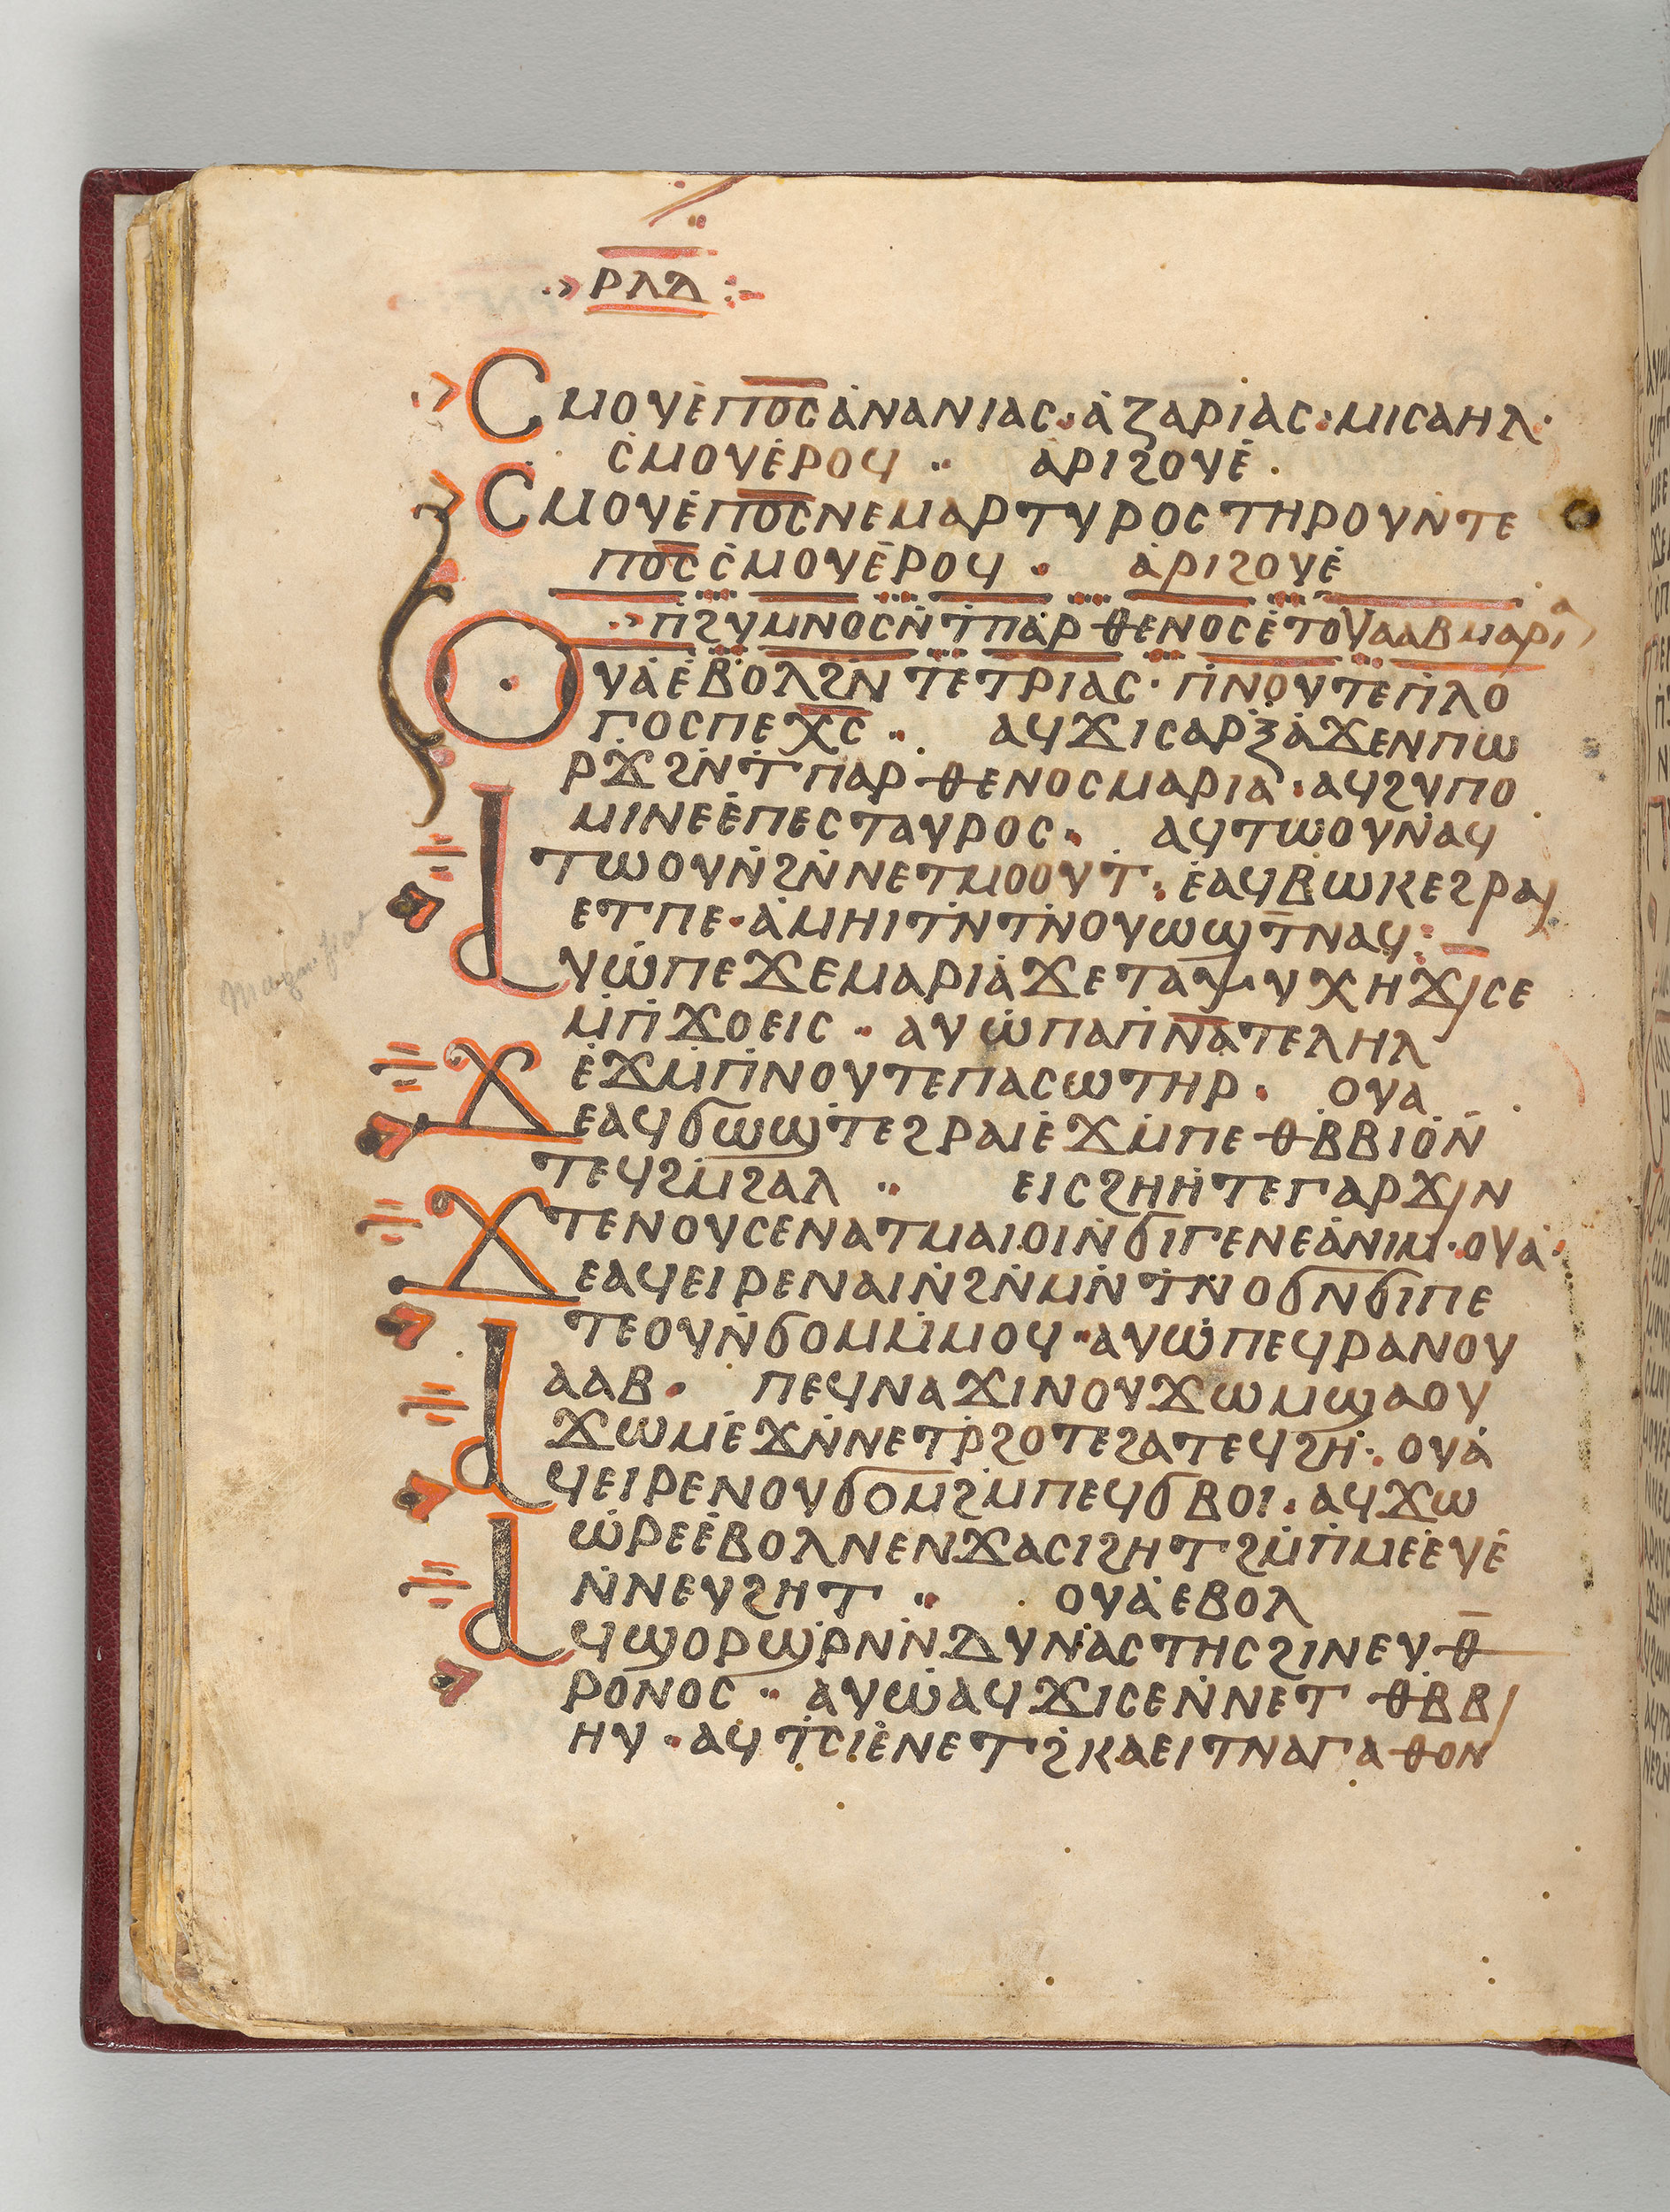 ⲣⲗⲇ
Ⲥⲙⲟⲩⲉ̇ⲡⲟ̅ⲥ̅ⲁ̇ⲛⲁⲛⲓⲁⲥ·ⲁ̇ⲍⲁⲣⲓ̇ⲁⲥ:ⲙⲓⲥⲁⲏⲗ·
ⲥ̇ⲙⲟⲩⲉ̇ⲣⲟϥ ·· ⲁ̇ⲣⲓϩⲟⲩⲉ̇ ·
Ⲥⲙⲟⲩⲉ̇ⲡⲟ̅ⲥ̅ⲛⲉⲙⲁⲣⲧⲩⲣⲟⲥⲧⲏⲣⲟⲩⲛ̇ⲧⲉ
ⲡⲟ̅ⲥ̅ⲥ̇ⲙⲟⲩⲉ̇ⲣⲟϥ · ⲁ̇ⲣⲓϩⲟⲩⲉ̇
ⲡ̇ϩⲩⲙⲛⲟⲥⲛ̇ⲧ̇ⲡⲁⲣⲑⲉⲛⲟⲥⲉ̇ⲧⲟⲩⲁⲁⲃⲙⲁⲣⲓⲁ
Ⲟⲩⲁ̇ⲉ̇ⲃⲟⲗϩⲛ̇ⲧⲉⲧⲣⲓⲁⲥ· ⲡ̇ⲛⲟⲩⲧⲉⲡ̇ⲗⲟ
ⲅⲟⲥⲡⲉⲭ̅ⲥ̅ ·· ⲁϥϫⲓⲥⲁⲣⲝ̇ⲁ̇ϫⲉⲛⲡⲱ
ⲣϫ̇ϩⲛ̇ⲧ̇ⲡⲁⲣⲑⲉⲛⲟⲥⲙⲁⲣⲓⲁ·ⲁϥϩⲩⲡⲟ
ⲙⲓⲛⲉⲉ̇ⲡⲉⲥⲧⲁⲩⲣⲟⲥ· ⲁϥⲧⲱⲟⲩⲛ̇ⲁϥ
ⲧⲱⲟⲩⲛ̇ϩⲛ̇ⲛⲉⲧⲙⲟⲟⲩⲧ: ⲉ̇ⲁϥⲃⲱⲕⲉϩⲣⲁⲓ
ⲉⲧⲡⲉ·ⲁ̇ⲙⲏⲓⲧⲛ̇ⲧⲛ̇ⲟⲩⲱϣⲧ̅ⲛⲁϥ:
Ⲁⲩⲱ̇ⲡⲉϫⲉⲙⲁⲣⲓⲁ̇ϫⲉⲧⲁⲯⲩⲭⲏϫⲓⲥⲉ
ⲙ̇ⲡ̇ϫⲟⲉⲓⲥ ·· ⲁⲩⲱ̇ⲡⲁⲡ̅ⲛ̅ⲁ̅ⲧⲉⲗⲏⲗ
ⲉ̇ϫⲙ̇ⲡ̇ⲛⲟⲩⲧⲉⲡⲁⲥⲱⲧⲏⲣ · ⲟⲩⲁ
Ϫⲉⲁϥϭⲱϣ̇ⲧⲉϩⲣⲁⲓⲉ̇ϫⲙ̇ⲡⲉⲑⲃ̇ⲃⲓⲟ̇ⲛ̇
ⲧⲉϥϩⲙ̇ϩⲁⲗ ·· ⲉⲓⲥϩⲏⲏ̇ⲧⲉⲅⲁⲣϫⲓⲛ
ⲧⲉⲛⲟⲩⲥⲉⲛⲁⲧⲙⲁⲓⲟⲓⲛ̇ϭⲓⲅⲉⲛⲉⲁ̇ⲛⲓⲙ·ⲟⲩⲁ̇·
Ϫⲉⲁϥⲉⲓⲣⲉⲛⲁⲓⲛ̇ϩⲛ̇ⲙⲛ̇ⲧⲛ̇ⲟϭⲛ̅ϭⲓⲡⲉ
ⲧⲉⲟⲩⲛ̇ϭⲟⲙⲙ̇ⲙⲟϥ··ⲁⲩⲱ̇ⲡⲉϥⲣⲁⲛⲟⲩ
ⲁⲁⲃ· ⲡⲉϥⲛⲁϫⲓⲛⲟⲩϫⲱⲙϣⲁⲟⲩ
ϫⲱⲙⲉ̇ϫⲛ̇ⲛⲉⲧⲣ̇ϩⲟⲧⲉϩⲁⲧⲉϥϩⲏ̇· ⲟⲩⲁ̇
Ⲁϥⲉⲓⲣⲉⲛⲟⲩϭⲟⲙϩⲙ̇ⲡⲉϥϭⲃⲟⲓ·ⲁϥϫⲱ
ⲱ̇ⲣⲉⲉ̇ⲃⲟⲗⲛⲉⲛϫⲁⲥⲓϩⲏⲧϩⲙ̇ⲡ̇ⲙⲉⲉⲩⲉ̇
ⲛ̇ⲛⲉⲩϩⲏⲧ ·· ⲟⲩⲁ̇ⲉⲃⲟⲗ
Ⲁϥϣⲟⲣϣ̇ⲣⲛ̇ⲛ̇ⲇⲩⲛⲁⲥⲧⲏⲥϩⲓⲛⲉⲩⲑ̅
ⲣⲟⲛⲟⲥ·· ⲁⲩⲱ̇ⲁϥϫⲓⲥⲉⲛ̇ⲛⲉⲧⲑⲃ̇ⲃⲓ
ⲏⲩ·ⲁϥⲧ̇ⲥⲓⲉ̇ⲛⲉⲧϩ̇ⲕⲁⲉⲓⲧⲛⲁⲅⲁⲑⲟⲛ